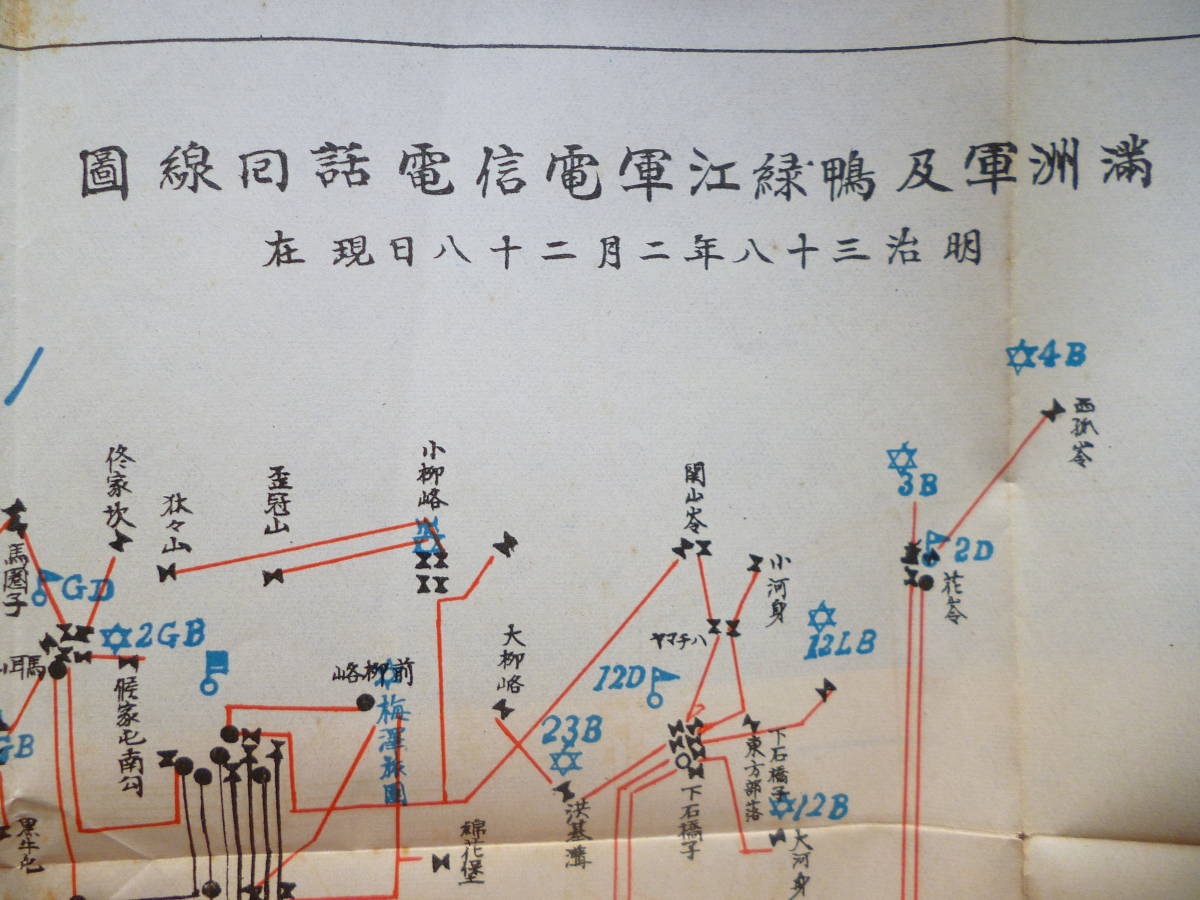 滿洲軍及鴨緑江軍電信電話回線圖
明治三十八年二月二十八日現在
4B
西孤岺
3B
2D
花岺
関山岺
小河身
ヤマチハ
12LB
12D
下石橋子
東方部落
下石橋子
12B
大河身
23B
洪基溝
大柳峪
小柳峪
歪冠山
狄々山
佟家坎
馬圏子
GD
2GB
馬耳山
候家屯南公
前柳峪
梅澤旅團
綿花堡
GB
黒牛屯